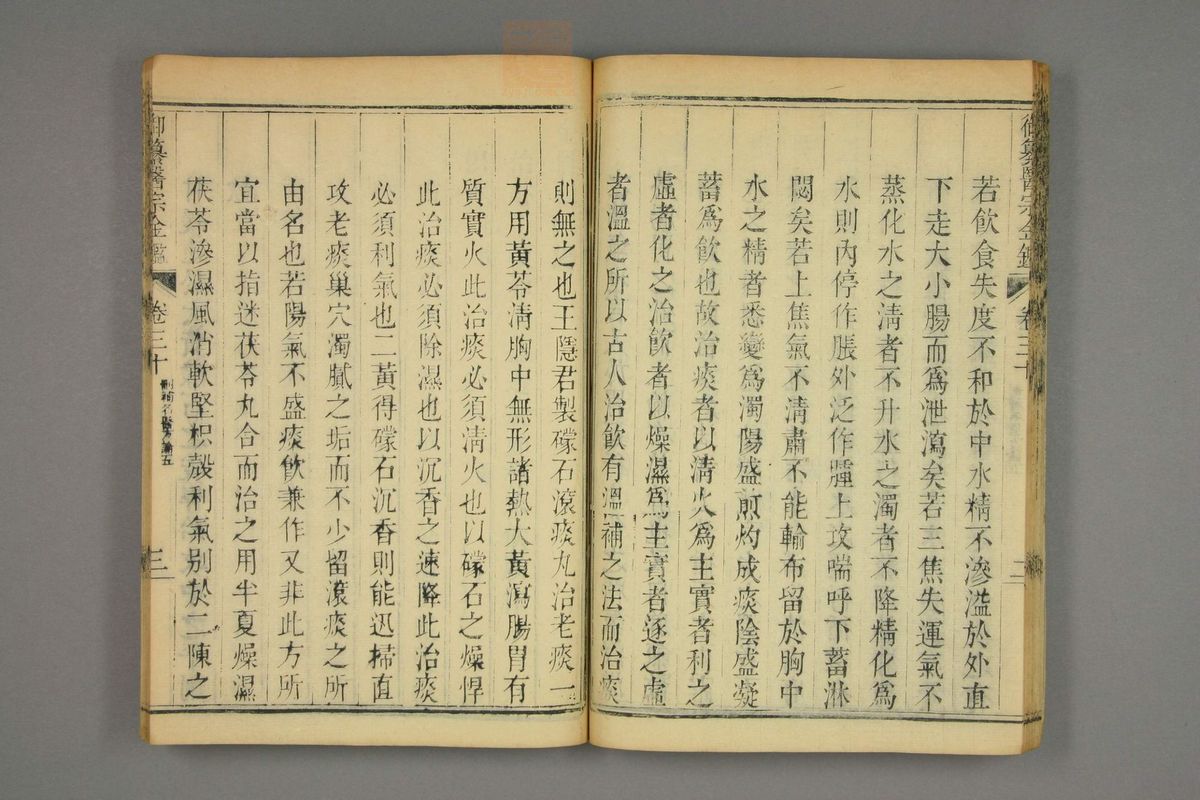 若飲食失度不和於中水精不滲溢於外直
下走大小腸而爲泄瀉矣若三焦失運氣不
蒸化水之淸者不升水之濁者不降精化爲
水則內停作脹外泛作腫上攻喘呼下蓄淋
悶矣若上焦氣不淸肅不能輸布留於胸中
水之精者悉變爲濁陽盛煎灼成痰陰盛凝
蓄爲飮也故治痰者以淸火爲主實者利之
虛者化之治飮者以燥濕爲主實者逐之虛
者溫之所以古人治飮有溫補之法而治痰
則無之也王隱君製礞石滾痰丸治老痰一
方用黃芩淸胸中無形諸熱大黃瀉腸胃有
質實火此治痰必須淸火也以礞石之燥悍
此治痰必須除濕也以沉香之速降此治痰
必須利氣也二黃得礞石沉香則能迅掃直
攻老痰巢穴濁膩之垢而不少留滾痰之所
由名也若陽氣不盛痰飮兼作又非此方所
宜當以指迷茯苓丸合而治之用半夏燥濕
茯苓滲濕風消軟堅枳殼利氣别於二陳之
御纂醫宗金鑑 卷三十 刪補名醫方論五 三
御纂醫宗金鑑 卷三十 二